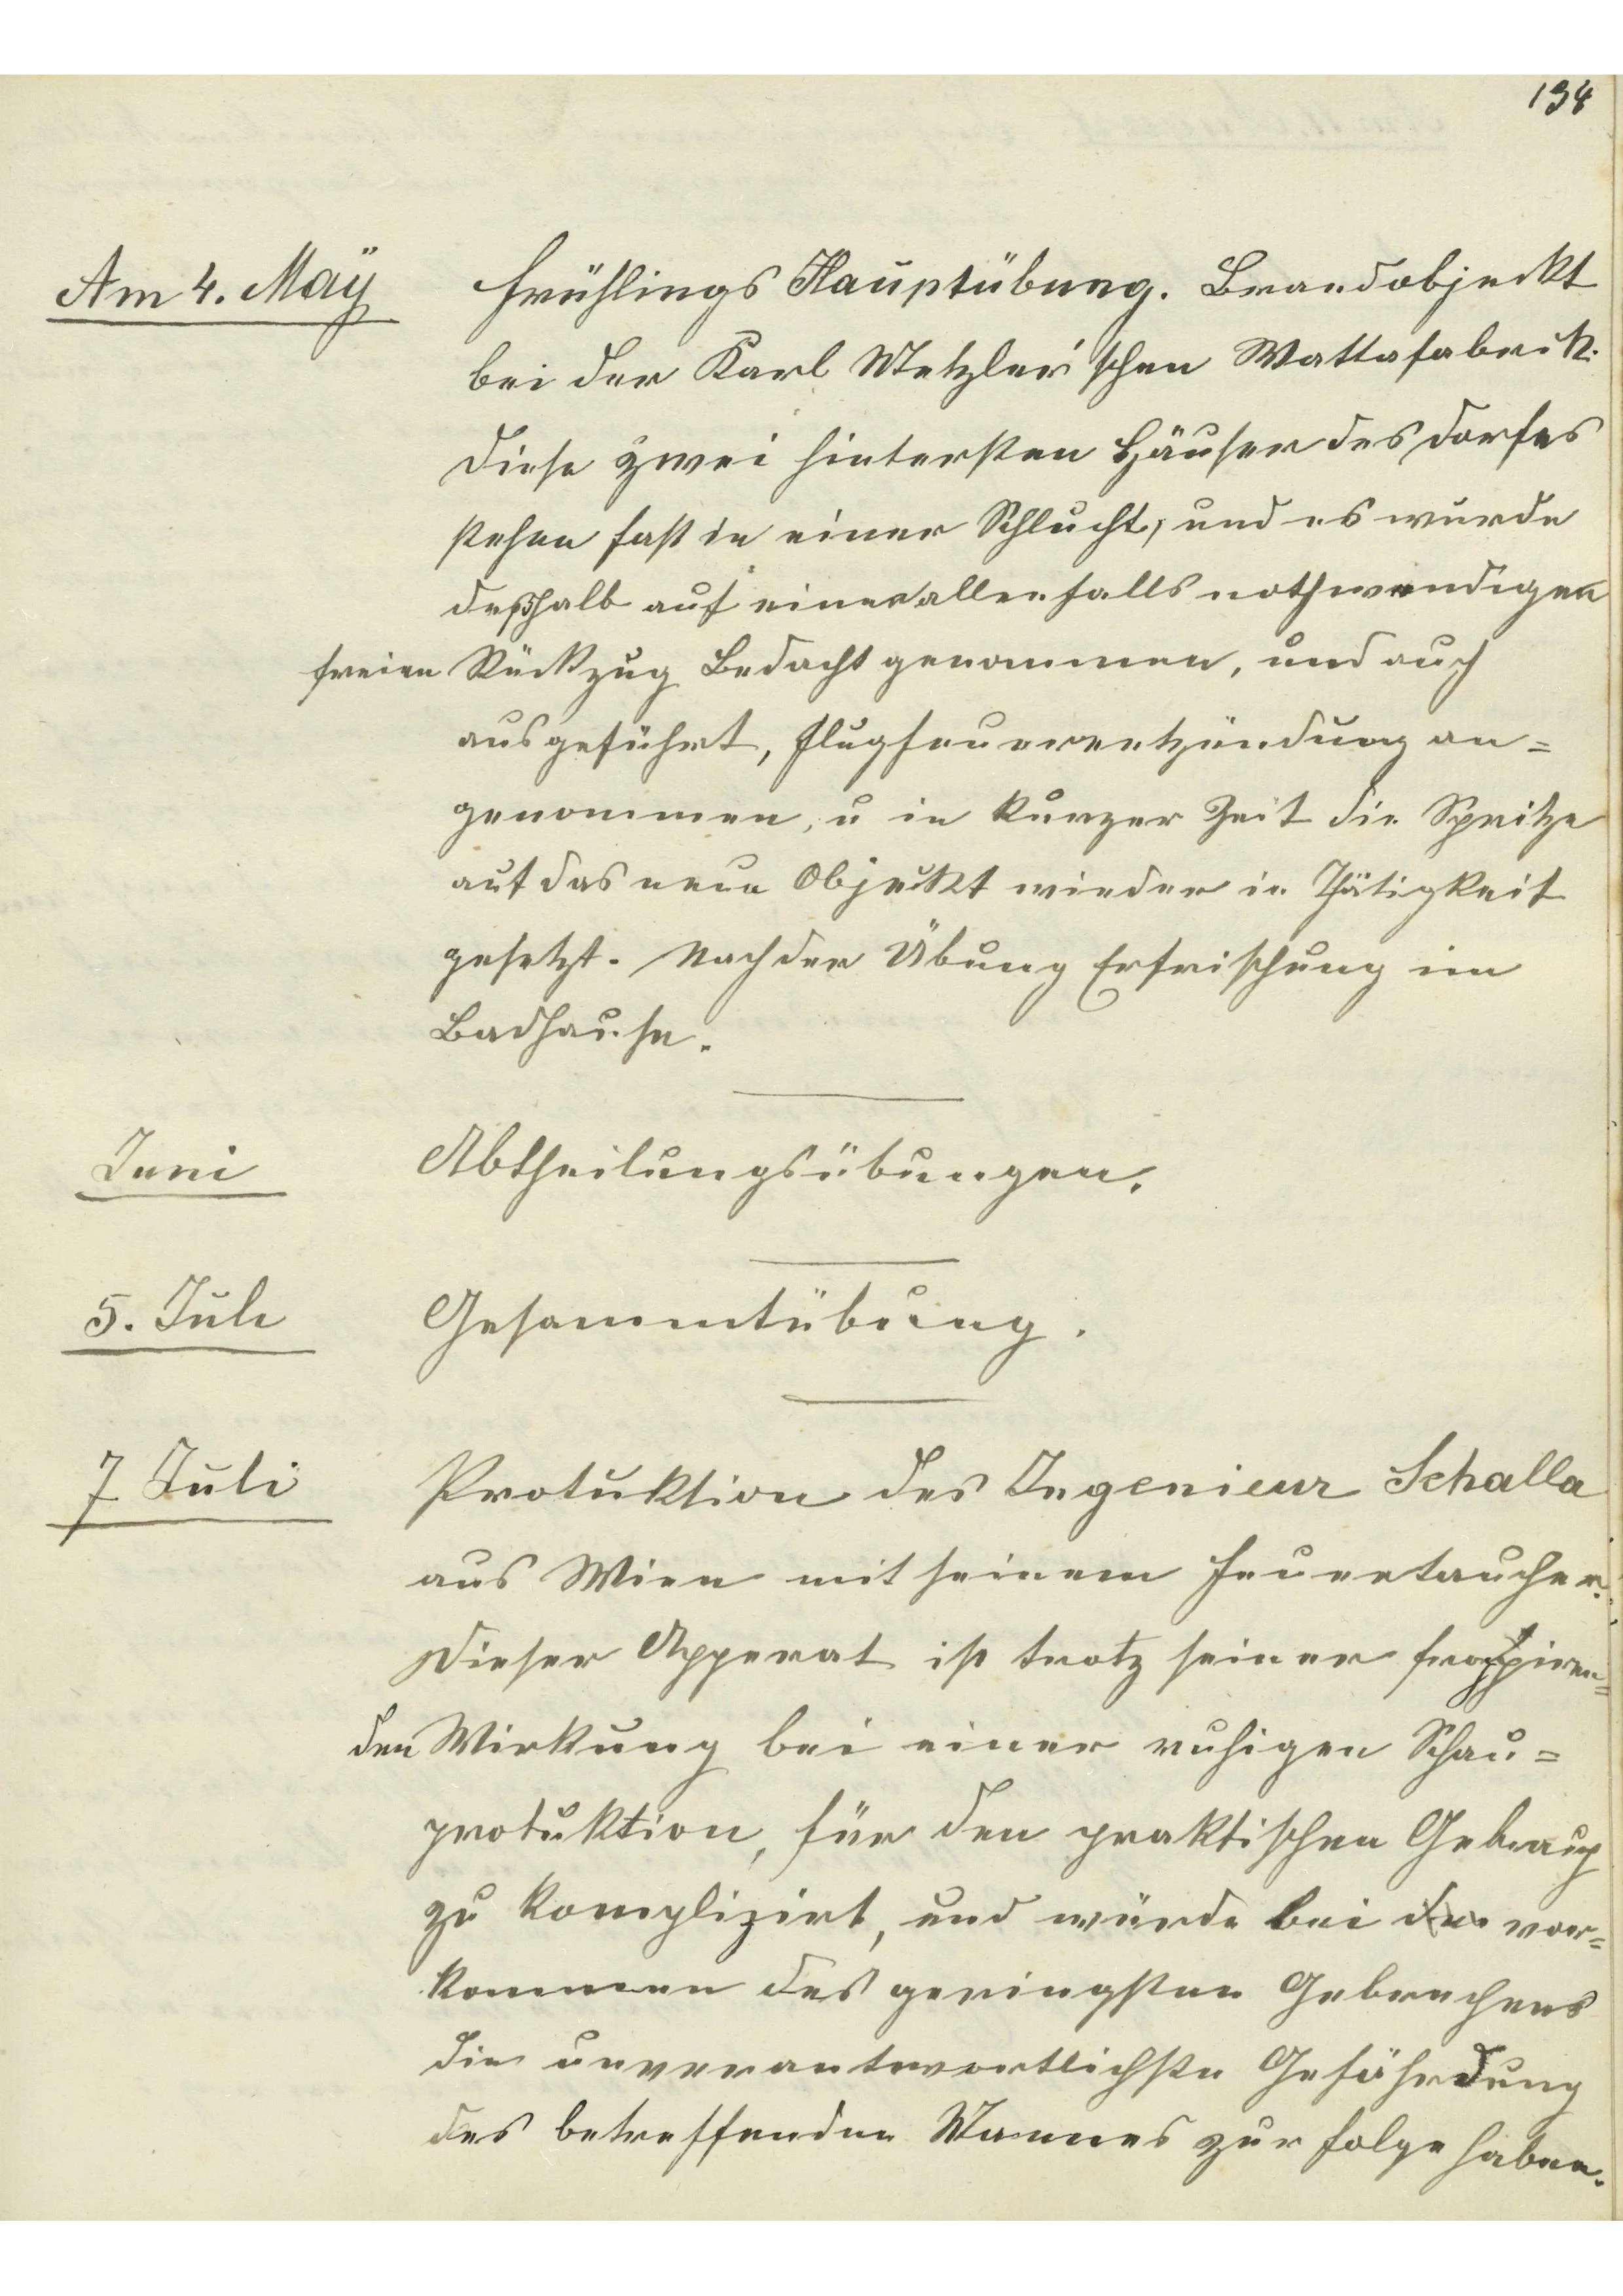 134
Am 4. Maÿ
Frühlings Hauptübung. Brandobjeckt
bei der Karl Metzler'schen Wattafabrik.
Diese zwei hintersten Häuser des Dorfes
stehen fast in einer Schlucht, und es wurde
deßhalb auf einen allenfalls nothwendigen
freien Rückzug Bedacht genommen, und auch
ausgeführt, Flugfeuerentzündung an=
genommen, u in kurzer Zeit die Spritze
auf das neue Objeckt wieder in Thätigkeit
gesetzt. Nach der Übung Erfrischung im
Badhause.
Juni
Abtheilungsübungen.
5. Juli
Gesammtübung.
7 Juli
Protuktion des Ingenieur Schalla
aus Wien mit seinem Feuertaucher.
Dieser Apperat ist trotz seiner frappiren=
den Wirkung bei einer ruhigen Schau=
protuktion, für den praktischen Gebrauch
zu komplizirt, und würde bei vor=
kommen des geringsten Gebrechens
die unverantwortlichste Gefährdung
des betreffenden Mannes zur Folge haben.